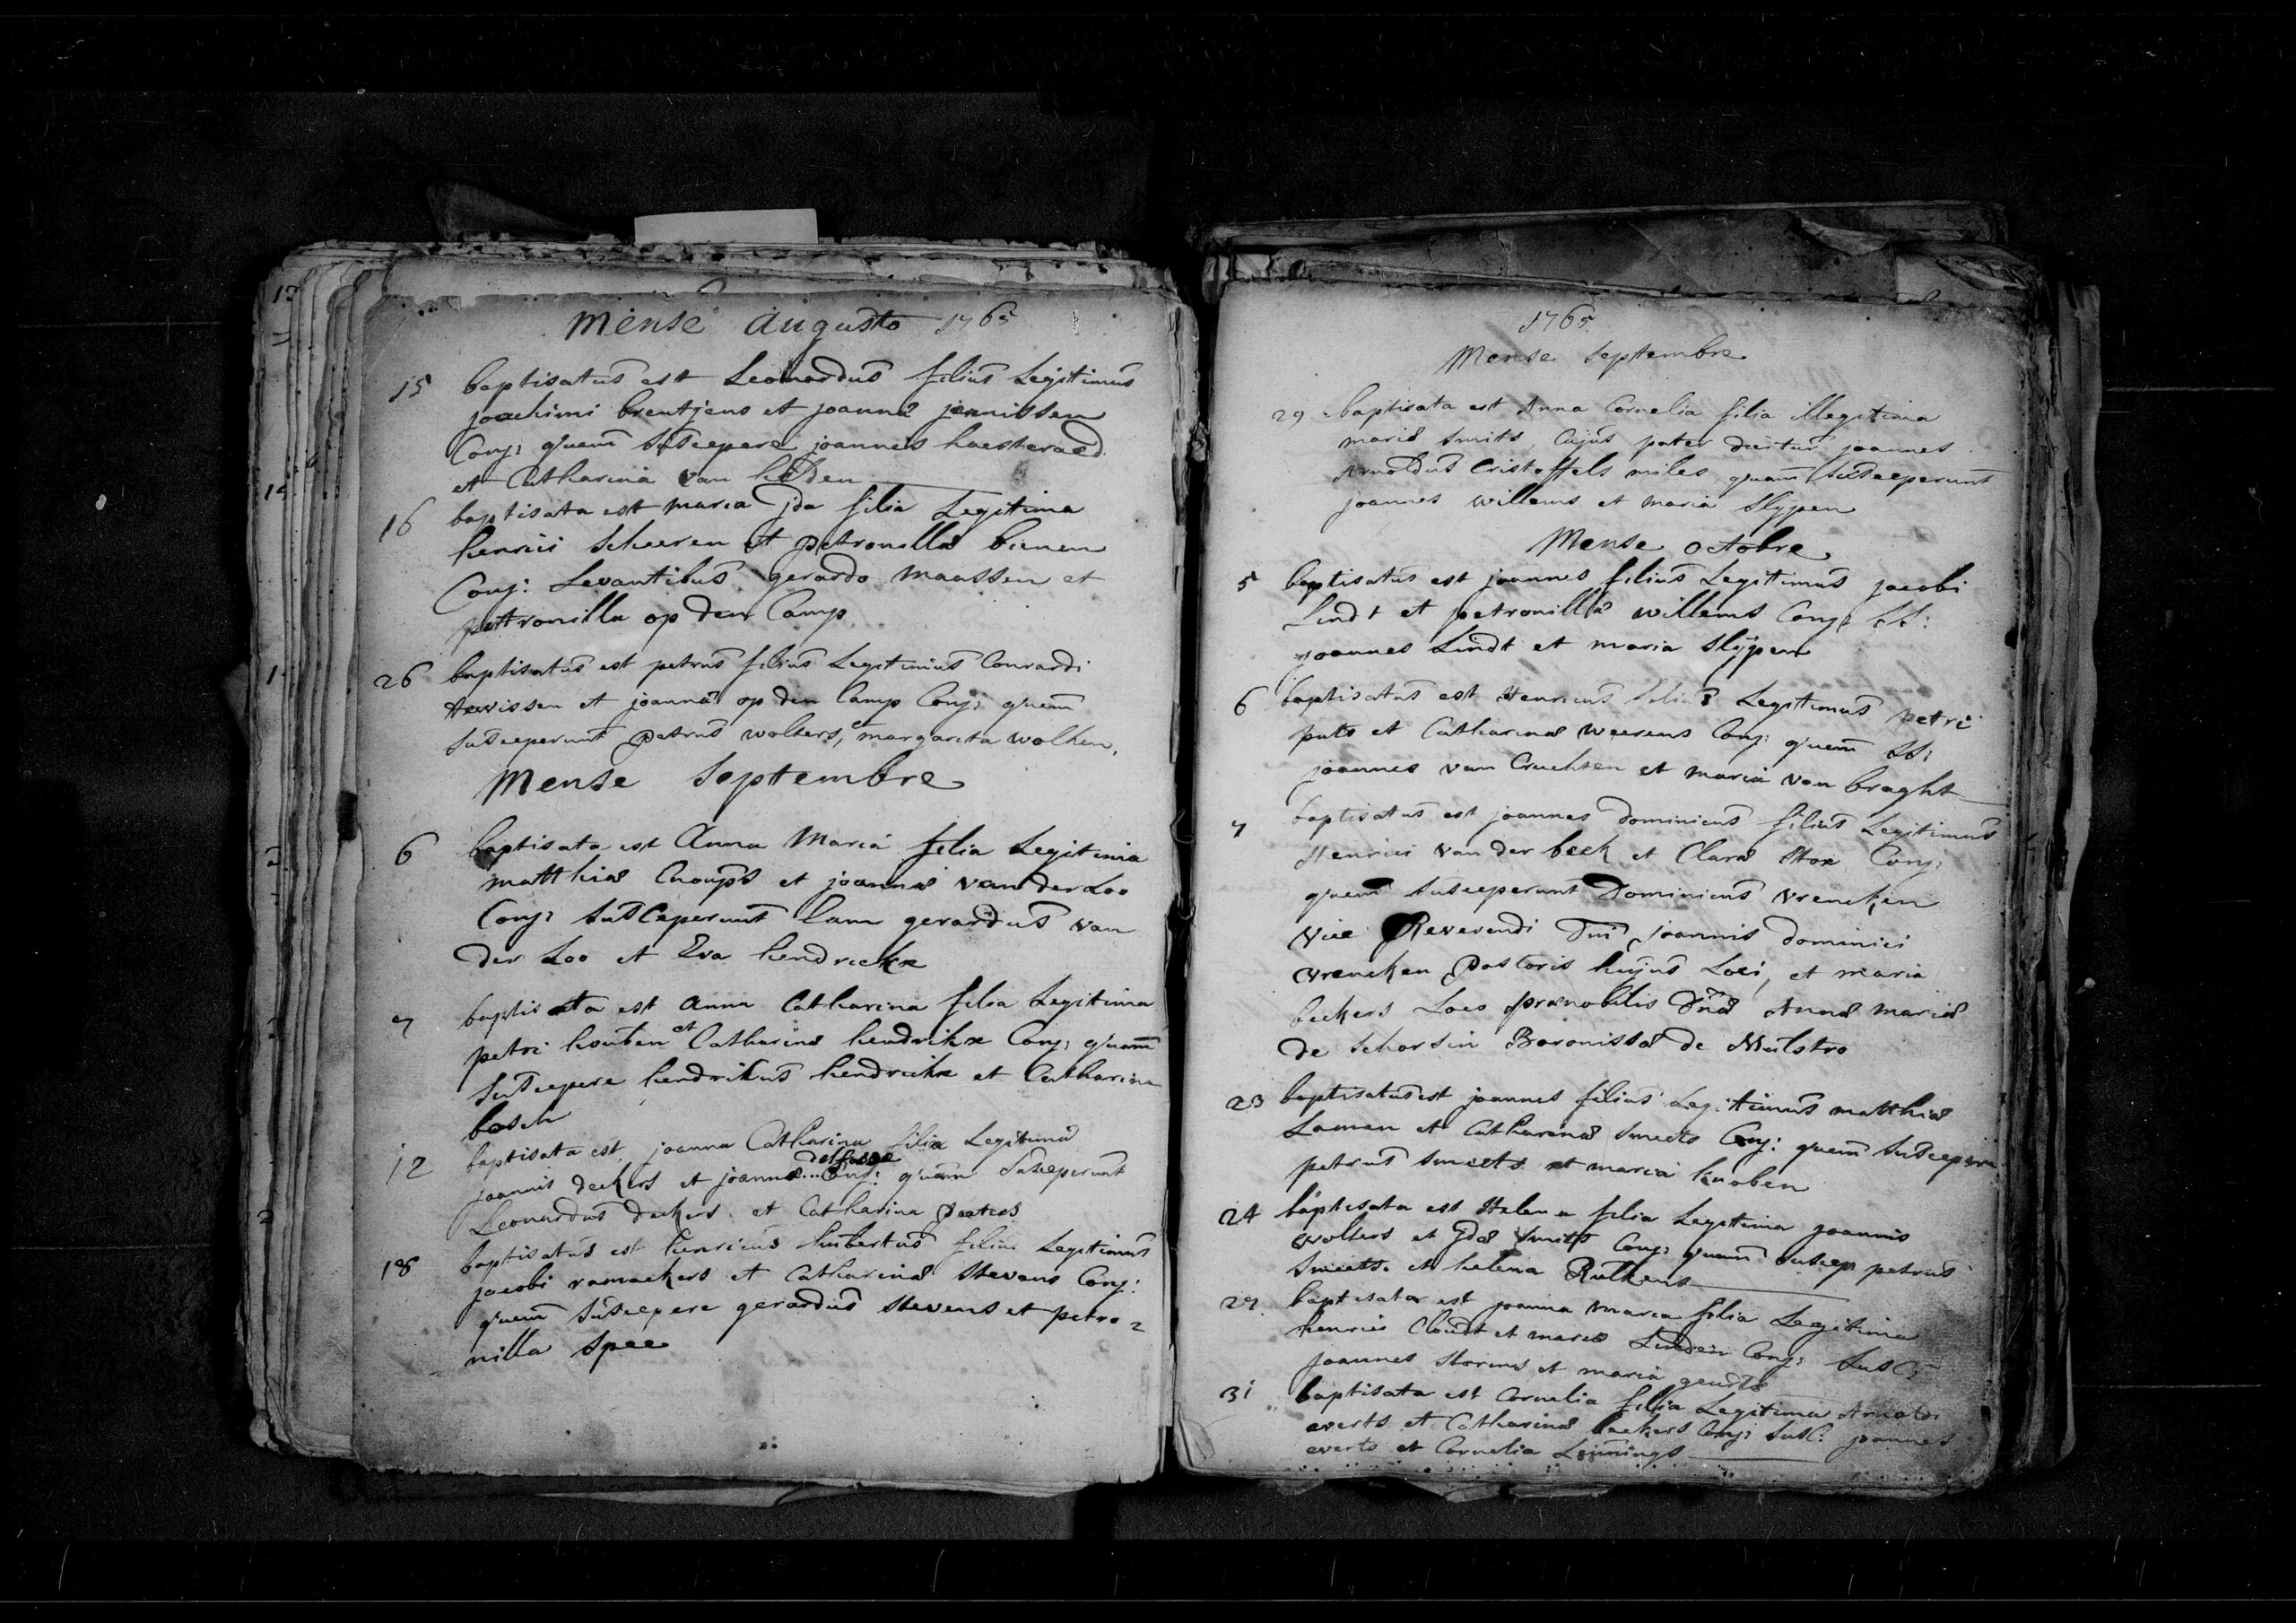 Mense Augusto 1765
15 baptisatus est Leonardus filius Legitimus
joachimi brentjens et joannæ jennissen
Conj: quem suscepere joannes haesteraed
et Catharina van
16 baptisata est maria jda filia Legitima
henrici scheeren et petronillæ bienen
Conj: Levantibus gerardo maassen et
petronilla op den Camp
26 baptisatus est petrus filius Legitimus Conrardi
tewissen et joannæ op den Camp Conj: quem
susceperunt petrus wolters, et margareta wolken.
Mense Septembre
6 baptisata est Anna Maria filia Legitima
matthiæ Cnoups et joannæ van der Loo
Conj: susceperunt eam gerardus van
der Loo et Eva hendrickx
7 baptisata est anna Catharina filia Legitima
petri houben et Catharinæ hendrikx Conj: quam
suscepere hendrikus hendrickx et Catharina
bosch
12 baptisata est joanna Catharina filia Legitima
joannis deckers et joannæ ... delfosse Conj: quam susceperunt
Leonardus deckers et Catharina peeters
18 baptisatus est henricus hubertus filius Legitimus
jacobi ramaekers et Catharinæ stevens Conj:
quem suscepere gerardus stevens et petro=
nilla spee
1765
Mense septembre
29 baptisata est Anna Cornelia filia illegitima
mariæ smits, cujus pater dicitur joannes
Arnoldus Cristoffels miles, quam susceperunt
joannes willems et maria slypen
Mense octobre
5 baptisatus est joannes filius Legitimus jacobi
Lindt et petronillæ willems Conj: SS:
joannes Lindt et maria slÿpen
6 baptisatus est Henricus filius Legitimus petri
puts et Catharinæ weerens Conj: quem SS:
joannes van Cruchten et maria van braght
7 baptisatus est joannes dominicus filius Legitimus
Henrici van der beek et Claræ stox Conj:
quem susceperunt Dominicus vrencken
vice Reverendi Dni joannis dominici
vrencken pastoris hujus Loci, et maria
beckers Loco prænobilis Dnæ Annæ mariæ
de schorsin Baronissæ de Milstro
23 baptisatus est joannes filius Legitimus matthiæ
Lamen et Catharinæ smeets Conj: quem suscepere
petrus smeets et maria knoben
24 baptisata est Helena filia Legitima joannis
wolters et jdæ smits Conj: quam suscep petrus
smeets et helena Rutkens
29 baptisata est joanna maria filia Legitima
henrici Cloudt et mariæ Linden Conj: Susc:
joannes storms et maria geurts
31 baptisata est Cornelia filia Legitima Arnoldi
everts et Catharinæ beckers Conj: susc: joannes
everts et Cornelia